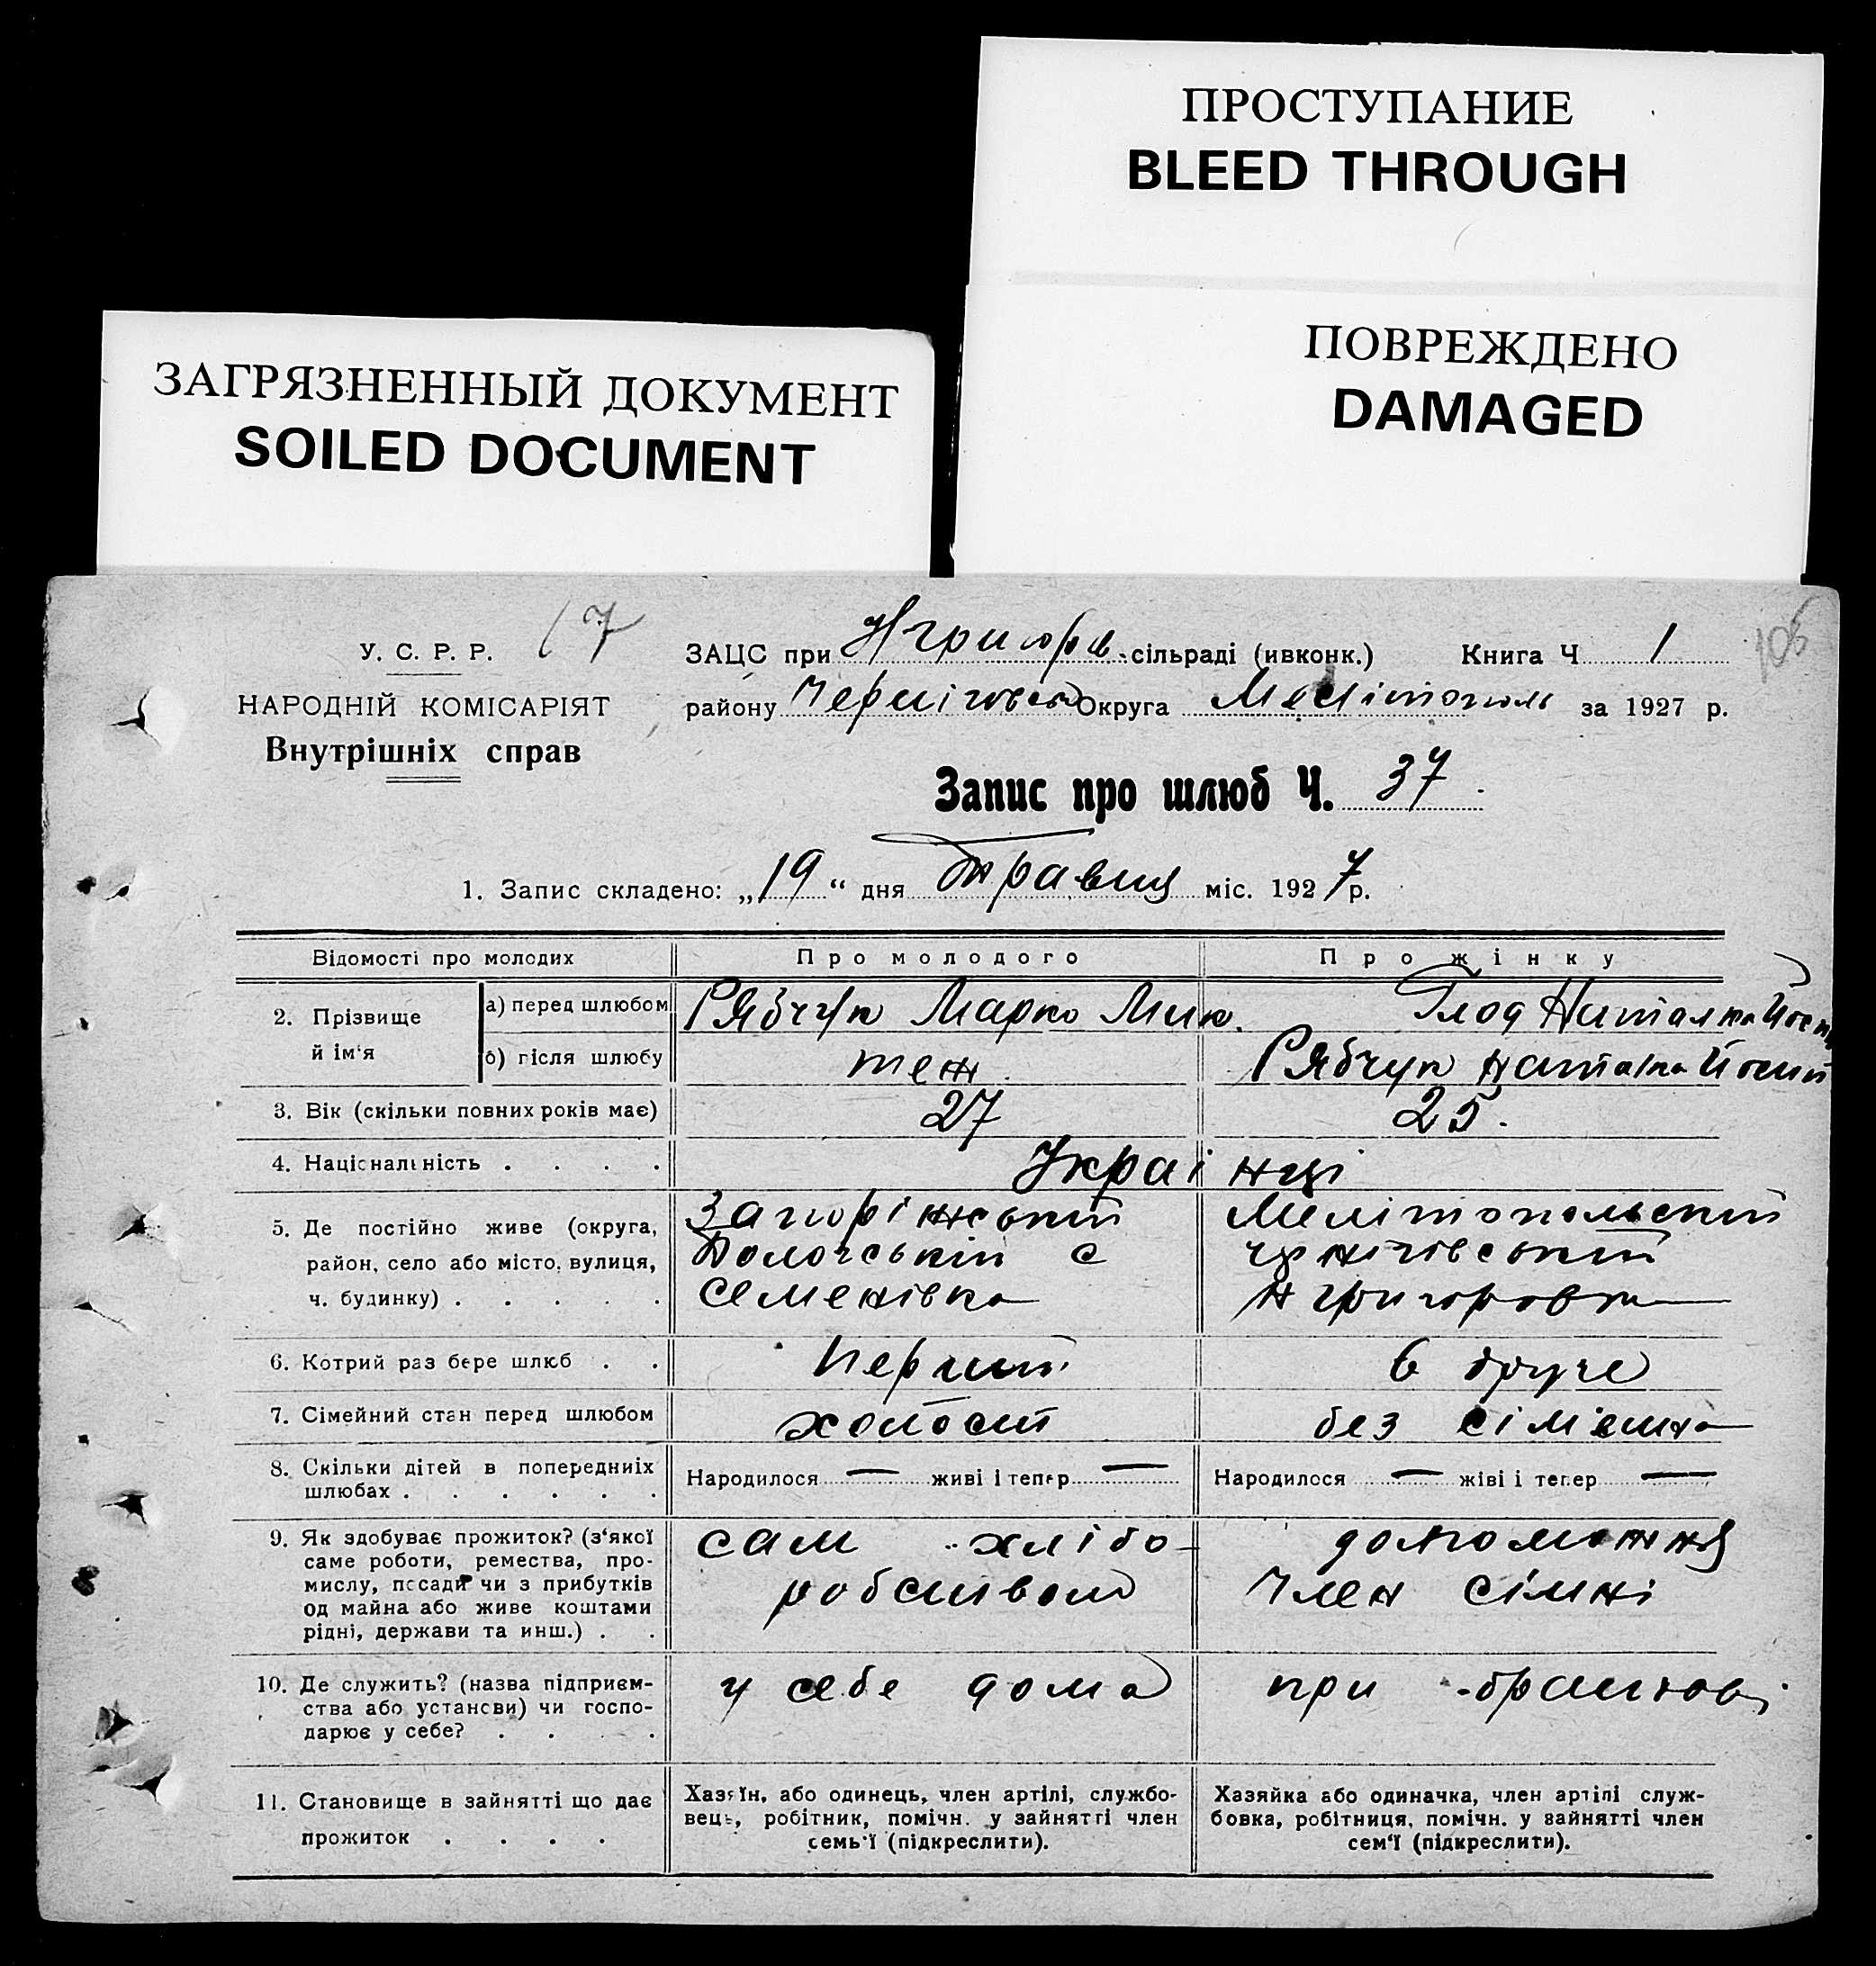 ПРОСТУПАНИЕ
BLEED THROUGH
ПОВРЕЖДЕНО
DAMAGED
ЗАГРЯЗНЕННЫЙ ДОКУМЕНТ
SOILED DOCUMENT
У. С. Р. Р.
7
НАРОДНІЙ КОМІСАРІЯТ
Внутрішніх справ
106
ЗАЦС при Нгригорів. сільраді (ивконк.) Книга Ч 1
району Черніговськ Округа Мелітополь за 1927 р.
Запис про шлюб Ч. 37
1. Запис складено: „19“ дня травня міс. 1927 р.
Відомості про молодих Про молодого Про жінку
2. Прізвище й ім‘я
а) перед шлюбом Рябчук Марко Мик. Глод Наталка Йосип
б) після шлюбу теж Рябчук Наталка Йосип
3. Вік (скільки повних років має) 27 25.
4. Національність . . . . Українці
5. Де постійно живе (округа, район, село або місто, вулиця, ч. будинку) . . . . .
Запоріжський
Пологський с
Семенівка
Мелітопольский
Чернігівський
Нгригоровка
6. Котрий раз бере шлюб . . Перший в друге
7. Сімейний стан перед шлюбом холостий без сімейна
8. Скільки дітей в попередниіх шлюбах . . . . . .
Народилося — живі і тепер — Народилося — жіві і тепер —
9. Як здобуває прожиток? (з‘якої
саме роботи, ремества, про-
мислу, посади чи з прибутків
од майна або живе коштами
рідні, держави та инш.) . .
сам хлібо-
робством
допоможня
член сімні
10. Де служить? (назва підприєм-
ства або установи) чи госпо-
дарює у себе? . . . .
у себе дома
при братові
11. Становище в зайнятті що дає
прожиток . . . .
Хазяїн, або одинець, член артілі, службо-
вець, робітник, помічн. у зайнятті член
семь‘ї (підкреслити).
Хазяйка або одиначка, член артілі служ-
бовка, робітниця, помічн. у зайнятті член
сем‘ї (підкреслити).